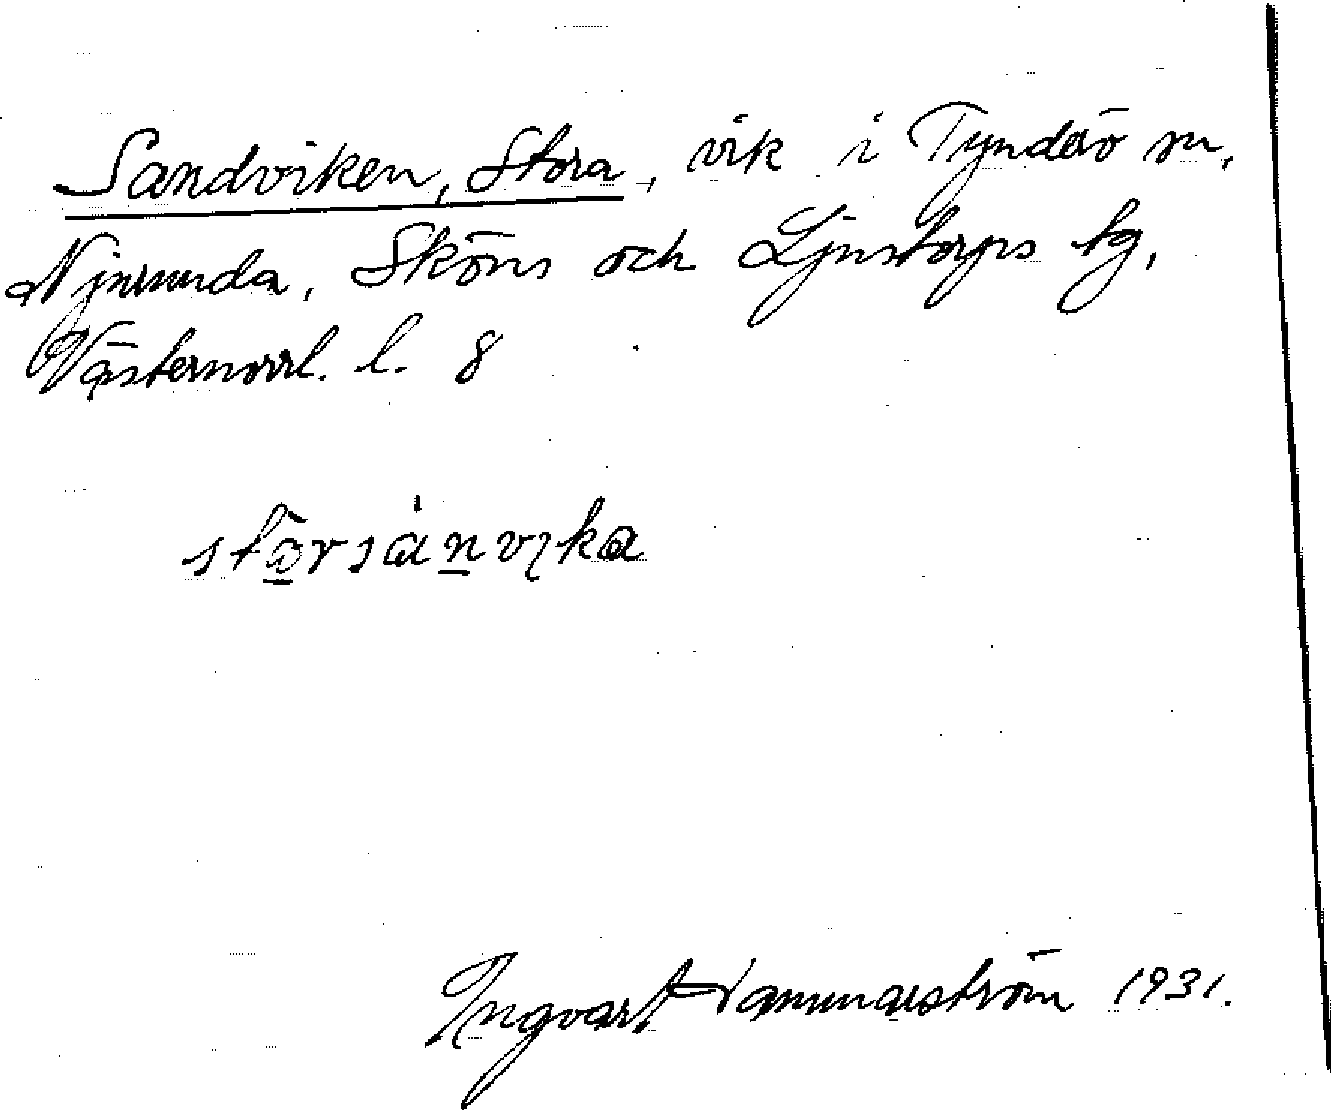 Sandviken, Stora, vik i Tynderö sn,
Njurunda, Sköns och Ljustorps tg,
Västernorrl. l. 8
Ingvar Hammarström 1931.